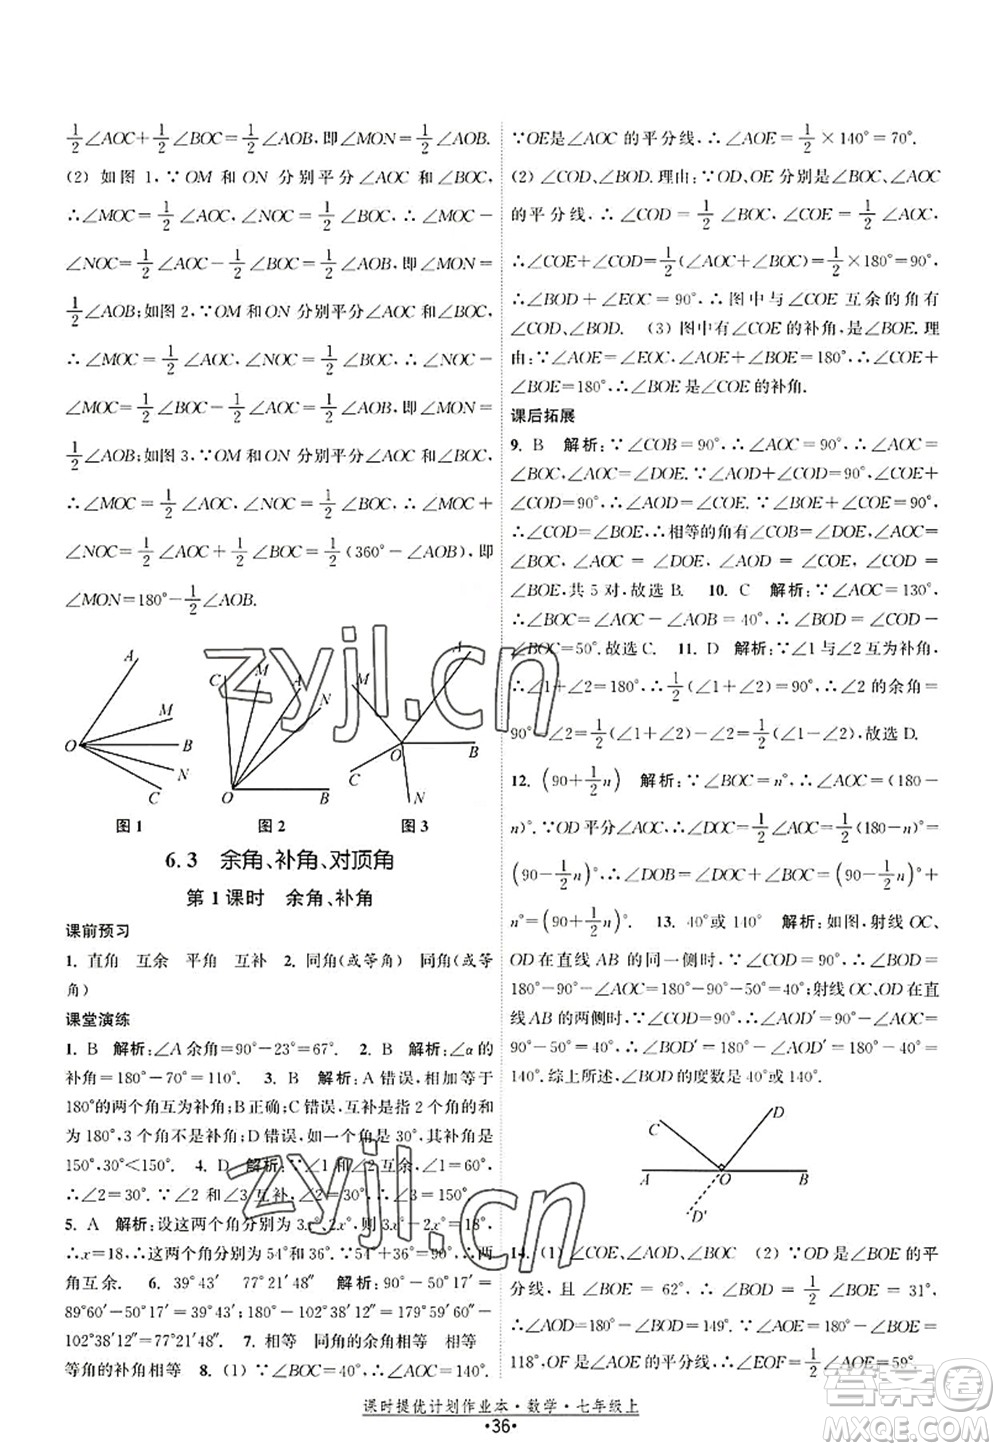 $\frac{1}{2}$∠AOC+$\frac{1}{2}$∠BOC=$\frac{1}{2}$∠AOB,即∠MON=$\frac{1}{2}$∠AOB.
(2) 如图 1,∵OM 和 ON 分别平分∠AOC 和∠BOC,
∴∠MOC=$\frac{1}{2}$∠AOC,∠NOC=$\frac{1}{2}$∠BOC,∴∠MOC-
∠NOC=$\frac{1}{2}$∠AOC-$\frac{1}{2}$∠BOC=$\frac{1}{2}$∠AOB,即∠MON=
$\frac{1}{2}$∠AOB;如图 2,∵OM 和 ON 分别平分∠AOC 和∠BOC,
∴∠MOC=$\frac{1}{2}$∠AOC,∠NOC=$\frac{1}{2}$∠BOC,∴∠NOC-
∠MOC=$\frac{1}{2}$∠BOC-$\frac{1}{2}$∠AOC=$\frac{1}{2}$∠AOB,即∠MON=
$\frac{1}{2}$∠AOB;如图 3,∵OM 和 ON 分别平分∠AOC 和∠BOC,
∴∠MOC=$\frac{1}{2}$∠AOC,∠NOC=$\frac{1}{2}$∠BOC,∴∠MOC+
∠NOC=$\frac{1}{2}$∠AOC+$\frac{1}{2}$∠BOC=$\frac{1}{2}$(360°-∠AOB),即
∠MON=180°-$\frac{1}{2}$∠AOB.
A M B N C O
图 1
C M A N O B
图 2
M A O B C N
图 3
6.3 余角、补角、对顶角
第 1 课时 余角、补角
课前预习
1. 直角 互余 平角 互补 2. 同角(或等角) 同角(或等
角)
课堂演练
1. B 解析:∠A 余角=90°-23°=67°. 2. B 解析:∠α 的
补角=180°-70°=110°. 3. B 解析:A 错误,相加等于
180°的两个角互为补角;B 正确;C 错误,互补是指 2 个角的和
为 180°,3 个角不是补角;D 错误,如一个角是 30°,其补角是
150°,30°<150°. 4. D 解析:∵∠1 和∠2 互余,∠1=60°,
∴∠2=30°.∵∠2 和∠3 互补,∴∠3=180°-∠2=150°.
5. A 解析:设这两个角分别为 3x°,2x°,则 3x°-2x°=18°,
∴x=18,∴这两个角分别为 54°和 36°.∵54°+36°=90°,∴两
角互余. 6. 39°43′ 77°21′48″ 解析:90°-50°17′=
89°60′-50°17′=39°43′;180°-102°38′12″=179°59′60″-
102°38′12″=77°21′48″. 7. 相等 同角的余角相等 相等
等角的补角相等 8. (1) ∵∠BOC=40°,∴∠AOC=140°.
∵OE是∠AOC 的平分线,∴∠AOE=$\frac{1}{2}$×140°=70°.
(2) ∠COD、∠BOD. 理由:∵OD、OE 分别是∠BOC、∠AOC
的平分线,∴∠COD=$\frac{1}{2}$∠BOC,∠COE=$\frac{1}{2}$∠AOC,
∴∠COE+∠COD=$\frac{1}{2}$(∠AOC+∠BOC)=$\frac{1}{2}$×180°=90°,
∴∠BOD+∠EOC=90°,∴图中与∠COE 互余的角有
∠COD、∠BOD. (3) 图中有∠COE的补角,是∠BOE. 理
由:∵∠COE=∠AOE,∠AOE+∠BOE=180°,∴∠COE+
∠BOE=180°,∴∠BOE是∠COE的补角.
课后拓展
9. B 解析:∵∠COB=90°,∴∠AOC=90°,∴∠BOC=
∠DOE,∠AOC=∠DOE.∵∠AOD+∠COD=90°,∠COE+
∠COD=90°,∴∠AOD=∠COE.∵∠BOE+∠COE=90°,
∴∠COD=∠BOE,∴相等的角有∠COB=∠DOE,∠AOC=
∠BOC,∠AOC=∠DOE,∠AOD=∠COE,∠COD=
∠BOE,共 5 对,故选 B. 10. C 解析:∵∠AOC=130°,
∴∠BOC=∠AOC-∠AOB=40°,∴∠BOD=∠COD-
∠BOC=50°.故选 C. 11. D 解析:∵∠1与∠2 互为补角,
∴∠1+∠2=180°,∴$\frac{1}{2}$(∠1+∠2)=90°,∴∠2 的余角=
90°-∠2=$\frac{1}{2}$(∠1+∠2)-∠2=$\frac{1}{2}$(∠1-∠2).故选 D.
12. (90+$\frac{1}{2}$n) 解析:∵∠BOC=n°,∴∠AOC=(180-
n)°.∵OD 平分∠AOC,∴∠DOC=$\frac{1}{2}$∠AOC=$\frac{1}{2}$(180-n)°=
(90-$\frac{1}{2}$n)°,∴∠BOD=∠DOC+∠BOC=(90-$\frac{1}{2}$n)°+
n°=(90+$\frac{1}{2}$n)°. 13. 40°或 140° 解析:如图,射线 OC、
OD 在直线 AB 的同一侧时,∵∠COD=90°,∴∠BOD=
180°-90°-∠AOC=180°-90°-50°=40°;射线OC、OD在直
线AB的两侧时,∵∠COD′=90°,∴∠AOD′=90°-∠AOC=
90°-50°=40°,∴∠BOD′=180°-∠AOD′=180°-40°=
140°.综上所述,∠BOD 的度数是 40°或 140°.
C D A O B D′
14. (1) ∠COE、∠AOD、∠BOC (2) ∵OD 是∠BOE 的平
分线,∠BOE=62°,∴∠BOD=$\frac{1}{2}$∠BOE=31°,
∴∠AOD=180°-∠BOD=149°.∵∠AOE=180°-∠BOE=
118°,OF 是∠AOE 的平分线,∴∠EOF=$\frac{1}{2}$∠AOE=59°.
课时提优计划作业本·数学·七年级上
·36·
zyjl.cn
zyjl.cn
答案圈
MXQE.COM